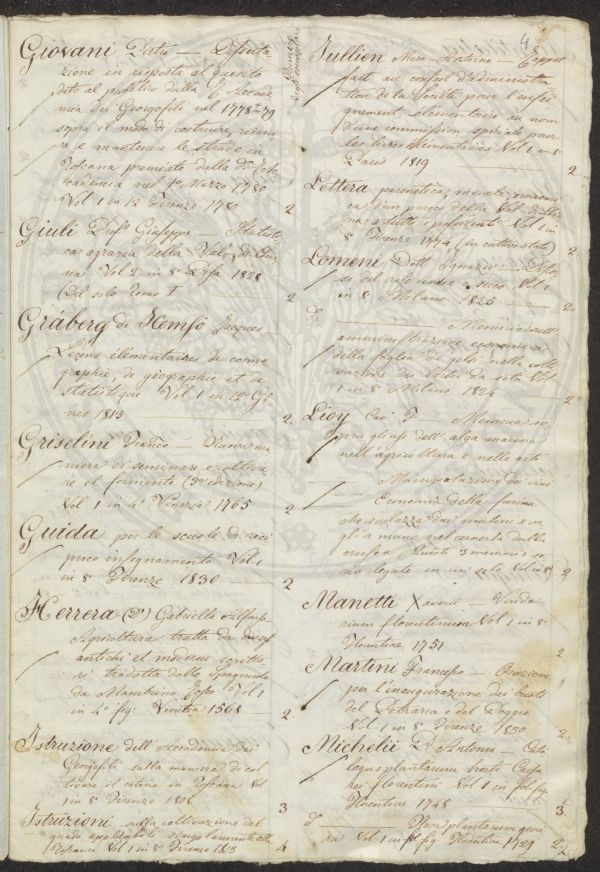 Giovani Pietro — Disserta-
zione in risposta al quesito
dato al pubblico dalla R. Accade
mia dei Georgofili nel 1778-79
sopra il modo di costruire, risarci
re, e mantenere le strade in
Toscana premiata dalla dta Ac
cademia nel 1° Marzo 1780
Vol 1 in 12 Firenze 1780 — 2
Giuli Profr Giuseppe — Statist
ca agraria della Val di Chia
na Vol 2 in 8° Pisa 1828
(Del solo Tomo I — 2
Gräberg di Hemsö Jacques —
Leçons élémentaires de cosmo
graphie, de géographie et de
statistique Vol 1 in 12° Gê
nes 1813 — 2
Griselini Franco — Nuova ma
niera di seminare e coltiva
re il formento (3a edizione)
Vol 1 in 4° Venezia 1765 2
Guida per le scuole di reci
proco insegnamento Vol 1
in 8° Firenze 1830 — 2
Herrera (D') Gabriello Alfonso
Agricoltura tratta da diversi
antichi et moderni scritto
ri tradotta dallo Spagnuolo
da Mambrino Roseo Vol 1
in 4° fig: Venetia 1568 — 2
Istruzione dell'Accademia dei
Georgofili sulla maniera di col
tivare il cotone in Toscana Vol
1 in 8° Firenze 1808 3
Istruzioni sulla coltivazione del
guado applicabili singolarmente alla
Toscana Vol 1 in 8° Firenze 1813 4
4
Numero
degli esemplari
Jullien Marc-Antoine — Rapport
fait au conseil d'administra
tion de la Société pour l'ensei
gnement élémentaire au nom
d'une commission spéciale pour
les livres élémentaires Vol 1 in 8
Paris 1819 — 2
Lettera parenetica, morale, econom
ca d'un paroco della Val di Chia
na a tutti i possidenti Vol 1 in
8° Firenze 1774 (in cattivo stato) 2
Lomeni Dott Ignazio —
del riso secco Vol 1
in 8° Milano 1825 — 2
do — Memoria sull'
amministrazione economica
della foglia di gelsi nella colti
vazione dei bachi da seta Vol
1 in 8° Milano 1824 — 2
Lioy Cav: F — Memoria so
pra gli usi dell'alga marina
nell'agricoltura e nelle arti
— Manipolazione dei vini
— Economia della farina
che svolazza dai mulini e va
glia a mano nel cenerla dalla
crusca Queste 3 memorie so
no legate in un solo Vol in 8° 2
Manetti Xaverii — Virida
rium florentinum Vol 1 in 8°
Florentiae 1751 2
Martini Francesco — Orazione
per l'inaugurazione dei busti
del Petrarca e del Poggio
Vol 1 in 8° Firenze 1830 2
Michelii P. Antonii — Cata
logus plantarum horti Caesa
rei florentini Vol 1 in fol: fig
Florentiae 1748 — 3
do — Nova plantarum gene
ra Vol 1 in fol: fig. Florentiae 1729 2